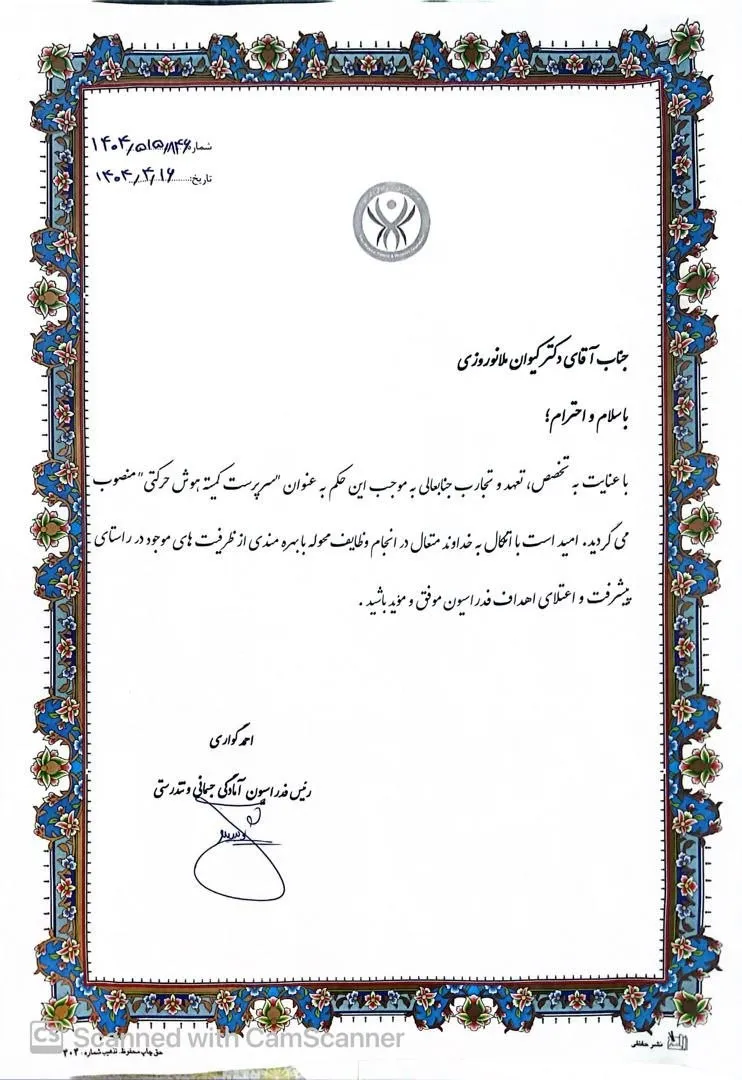 شماره: ۱۴۰۴/۵۱۵/۸۴۶
تاریخ: ۱۴۰۴/۴/۱۶
جناب آقای دکتر کیوان ملانوروزی
باسلام و احترام؛
با عنایت به تخصص، تعهد و تجارب جنابعالی به موجب این حکم به عنوان "سرپرست کمیته هوش حرکتی" منصوب
می گردید. امید است با اتکال به خداوند متعال در انجام وظایف محوله با بهره مندی از ظرفیت های موجود در راستای
پیشرفت و اعتلای اهداف فدراسیون موفق و مؤید باشید .
احمد گواری
رئیس فدراسیون آمادگی جسمانی و تندرستی
CS Scanned with CamScanner
حق چاپ محفوظ. تذهیب شماره: ۴۰۴
نشر حقیقی